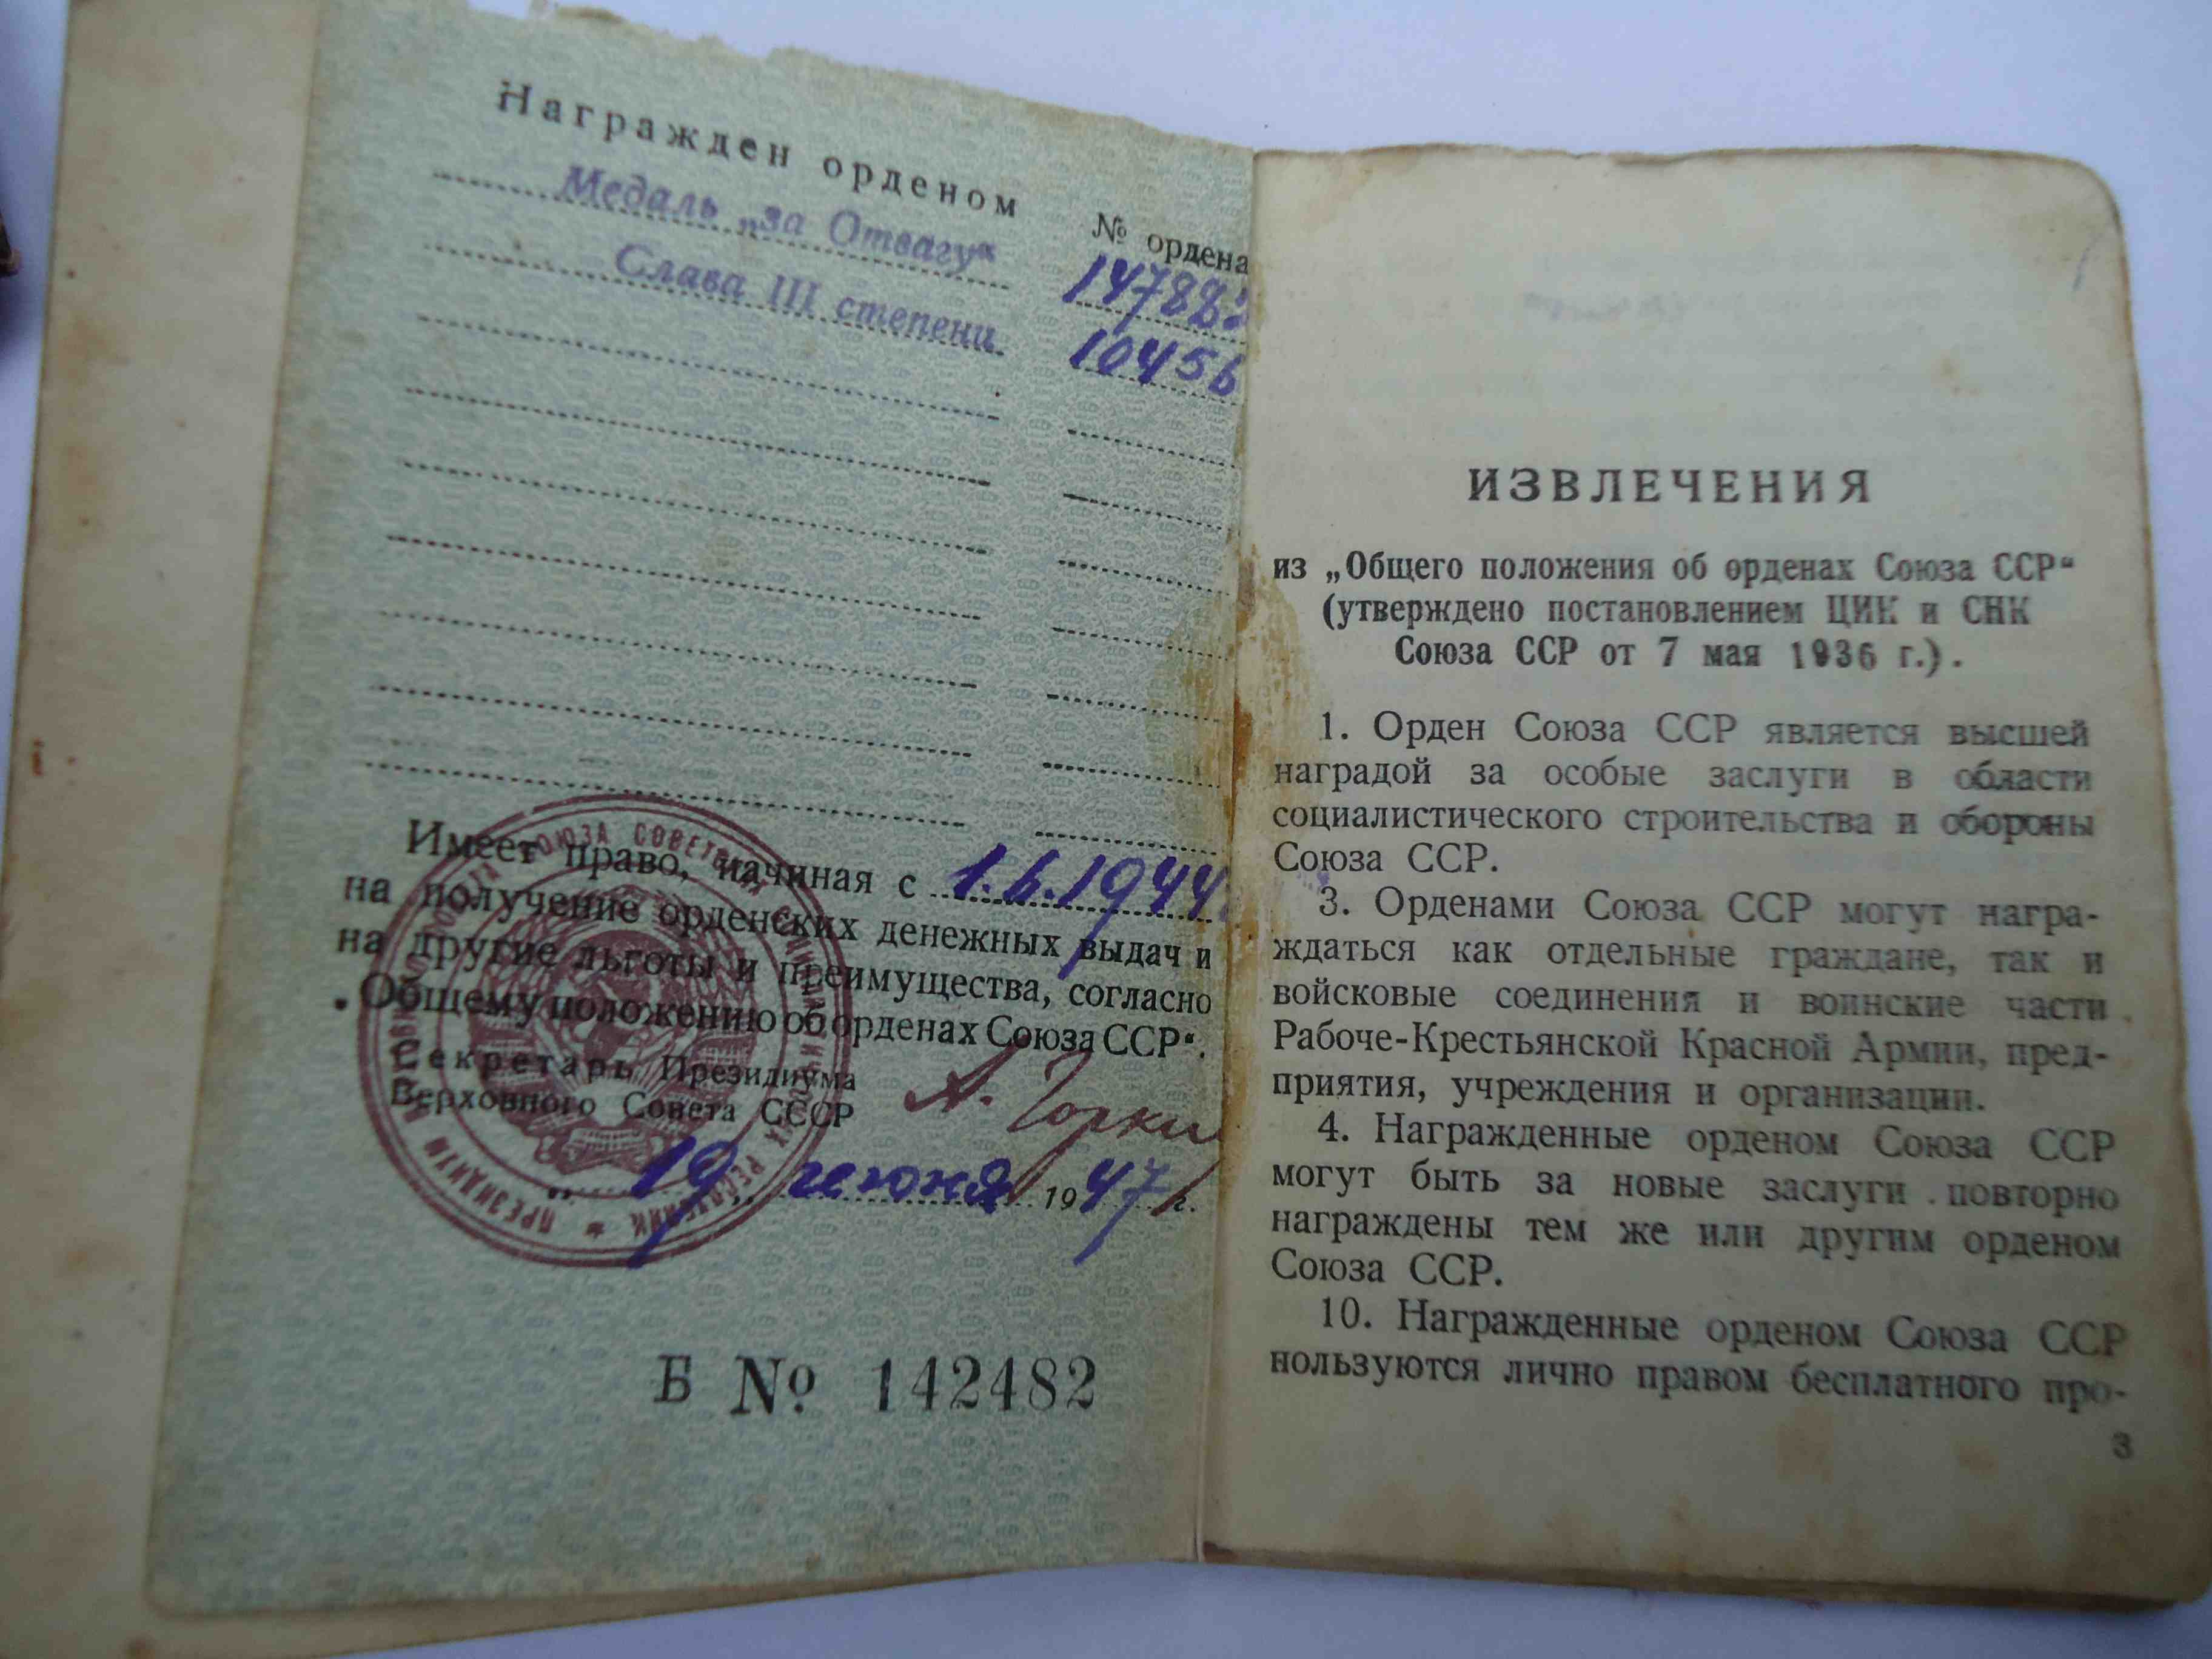 Награжден орденом № ордена
Медаль „за Отвагу“ 14788
Слава III степени. 10456
Имеет право, начиная с 1.6.1944
на получение орденских денежных выдач и
на другие льготы и преимущества, согласно
„Общему положению об орденах Союза ССР“.
Секретарь Президиума
Верховного Совета СССР А. Горкин
„19“ июня 1947 г.
Б № 142482
ИЗВЛЕЧЕНИЯ
из „Общего положения об орденах Союза ССР“
(утверждено постановлением ЦИК и СНК
Союза ССР от 7 мая 1936 г.).
1. Орден Союза ССР является высшей
наградой за особые заслуги в области
социалистического строительства и обороны
Союза ССР.
3. Орденами Союза ССР могут награ-
ждаться как отдельные граждане, так и
войсковые соединения и воинские части
Рабоче-Крестьянской Красной Армии, пред-
приятия, учреждения и организации.
4. Награжденные орденом Союза ССР
могут быть за новые заслуги повторно
награждены тем же или другим орденом
Союза ССР.
10. Награжденные орденом Союза ССР
пользуются лично правом бесплатного про-
3